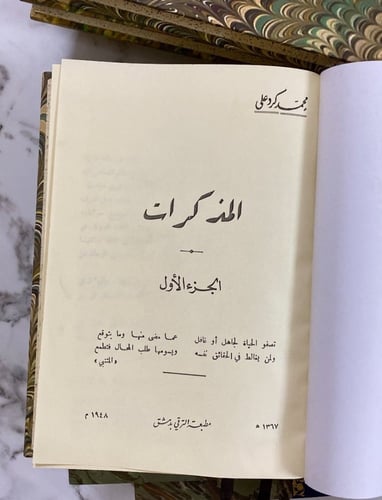 محمد كرد علي
المذكرات
الجزء الأول
تصفو الحياة لجاهل أو غافل عما مضى منها وما يتوقع
ولمن يغالط في الحقائق نفسه ويسومها طلب المحال فتطمع
«المتنبي»
١٣٦٧ هـ مطبعة الترقي بدمشق ١٩٤٨ م